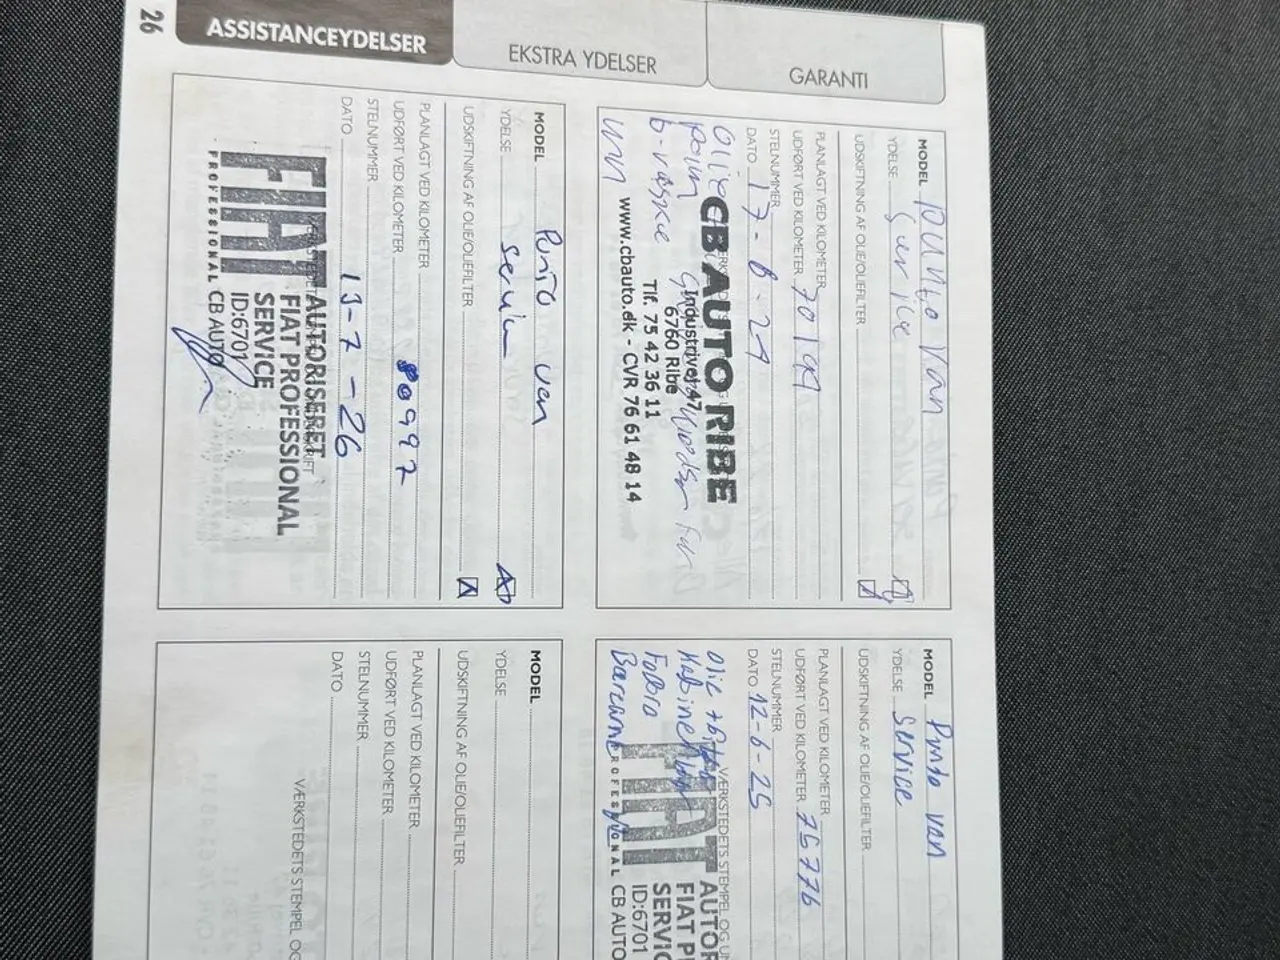 26
ASSISTANCEYDELSER
EKSTRA YDELSER
GARANTI
MODEL Punto Van
YDELSE Service
UDSKIFTNING AF OLIE/OLIEFILTER
PLANLAGT VED KILOMETER
UDFØRT VED KILOMETER 70199
STELNUMMER
DATO 17-6-24
Olie
CB AUTO RIBE
Pollen
Industrivej 47
6760 Ribe
b-væske
Tlf. 75 42 36 11
www.cbauto.dk - CVR 76 61 48 14
MODEL Punto van
YDELSE Service
UDSKIFTNING AF OLIE/OLIEFILTER
PLANLAGT VED KILOMETER
UDFØRT VED KILOMETER 75776
STELNUMMER
DATO 12-6-25
VÆRKSTEDETS STEMPEL OG UN
Olie +filter
Kabine
Fodbro
FIAT
PROFESSIONAL
AUTOR
FIAT P
SERVIC
ID:6701
CB AUTO
MODEL Punto van
YDELSE Service
UDSKIFTNING AF OLIE/OLIEFILTER
PLANLAGT VED KILOMETER
UDFØRT VED KILOMETER 80997
STELNUMMER
DATO 13-7-26
FIAT
PROFESSIONAL
AUTORISERET
FIAT PROFESSIONAL
SERVICE
ID:6701
CB AUTO
MODEL
YDELSE
UDSKIFTNING AF OLIE/OLIEFILTER
PLANLAGT VED KILOMETER
UDFØRT VED KILOMETER
STELNUMMER
DATO
VÆRKSTEDETS STEMPEL OG